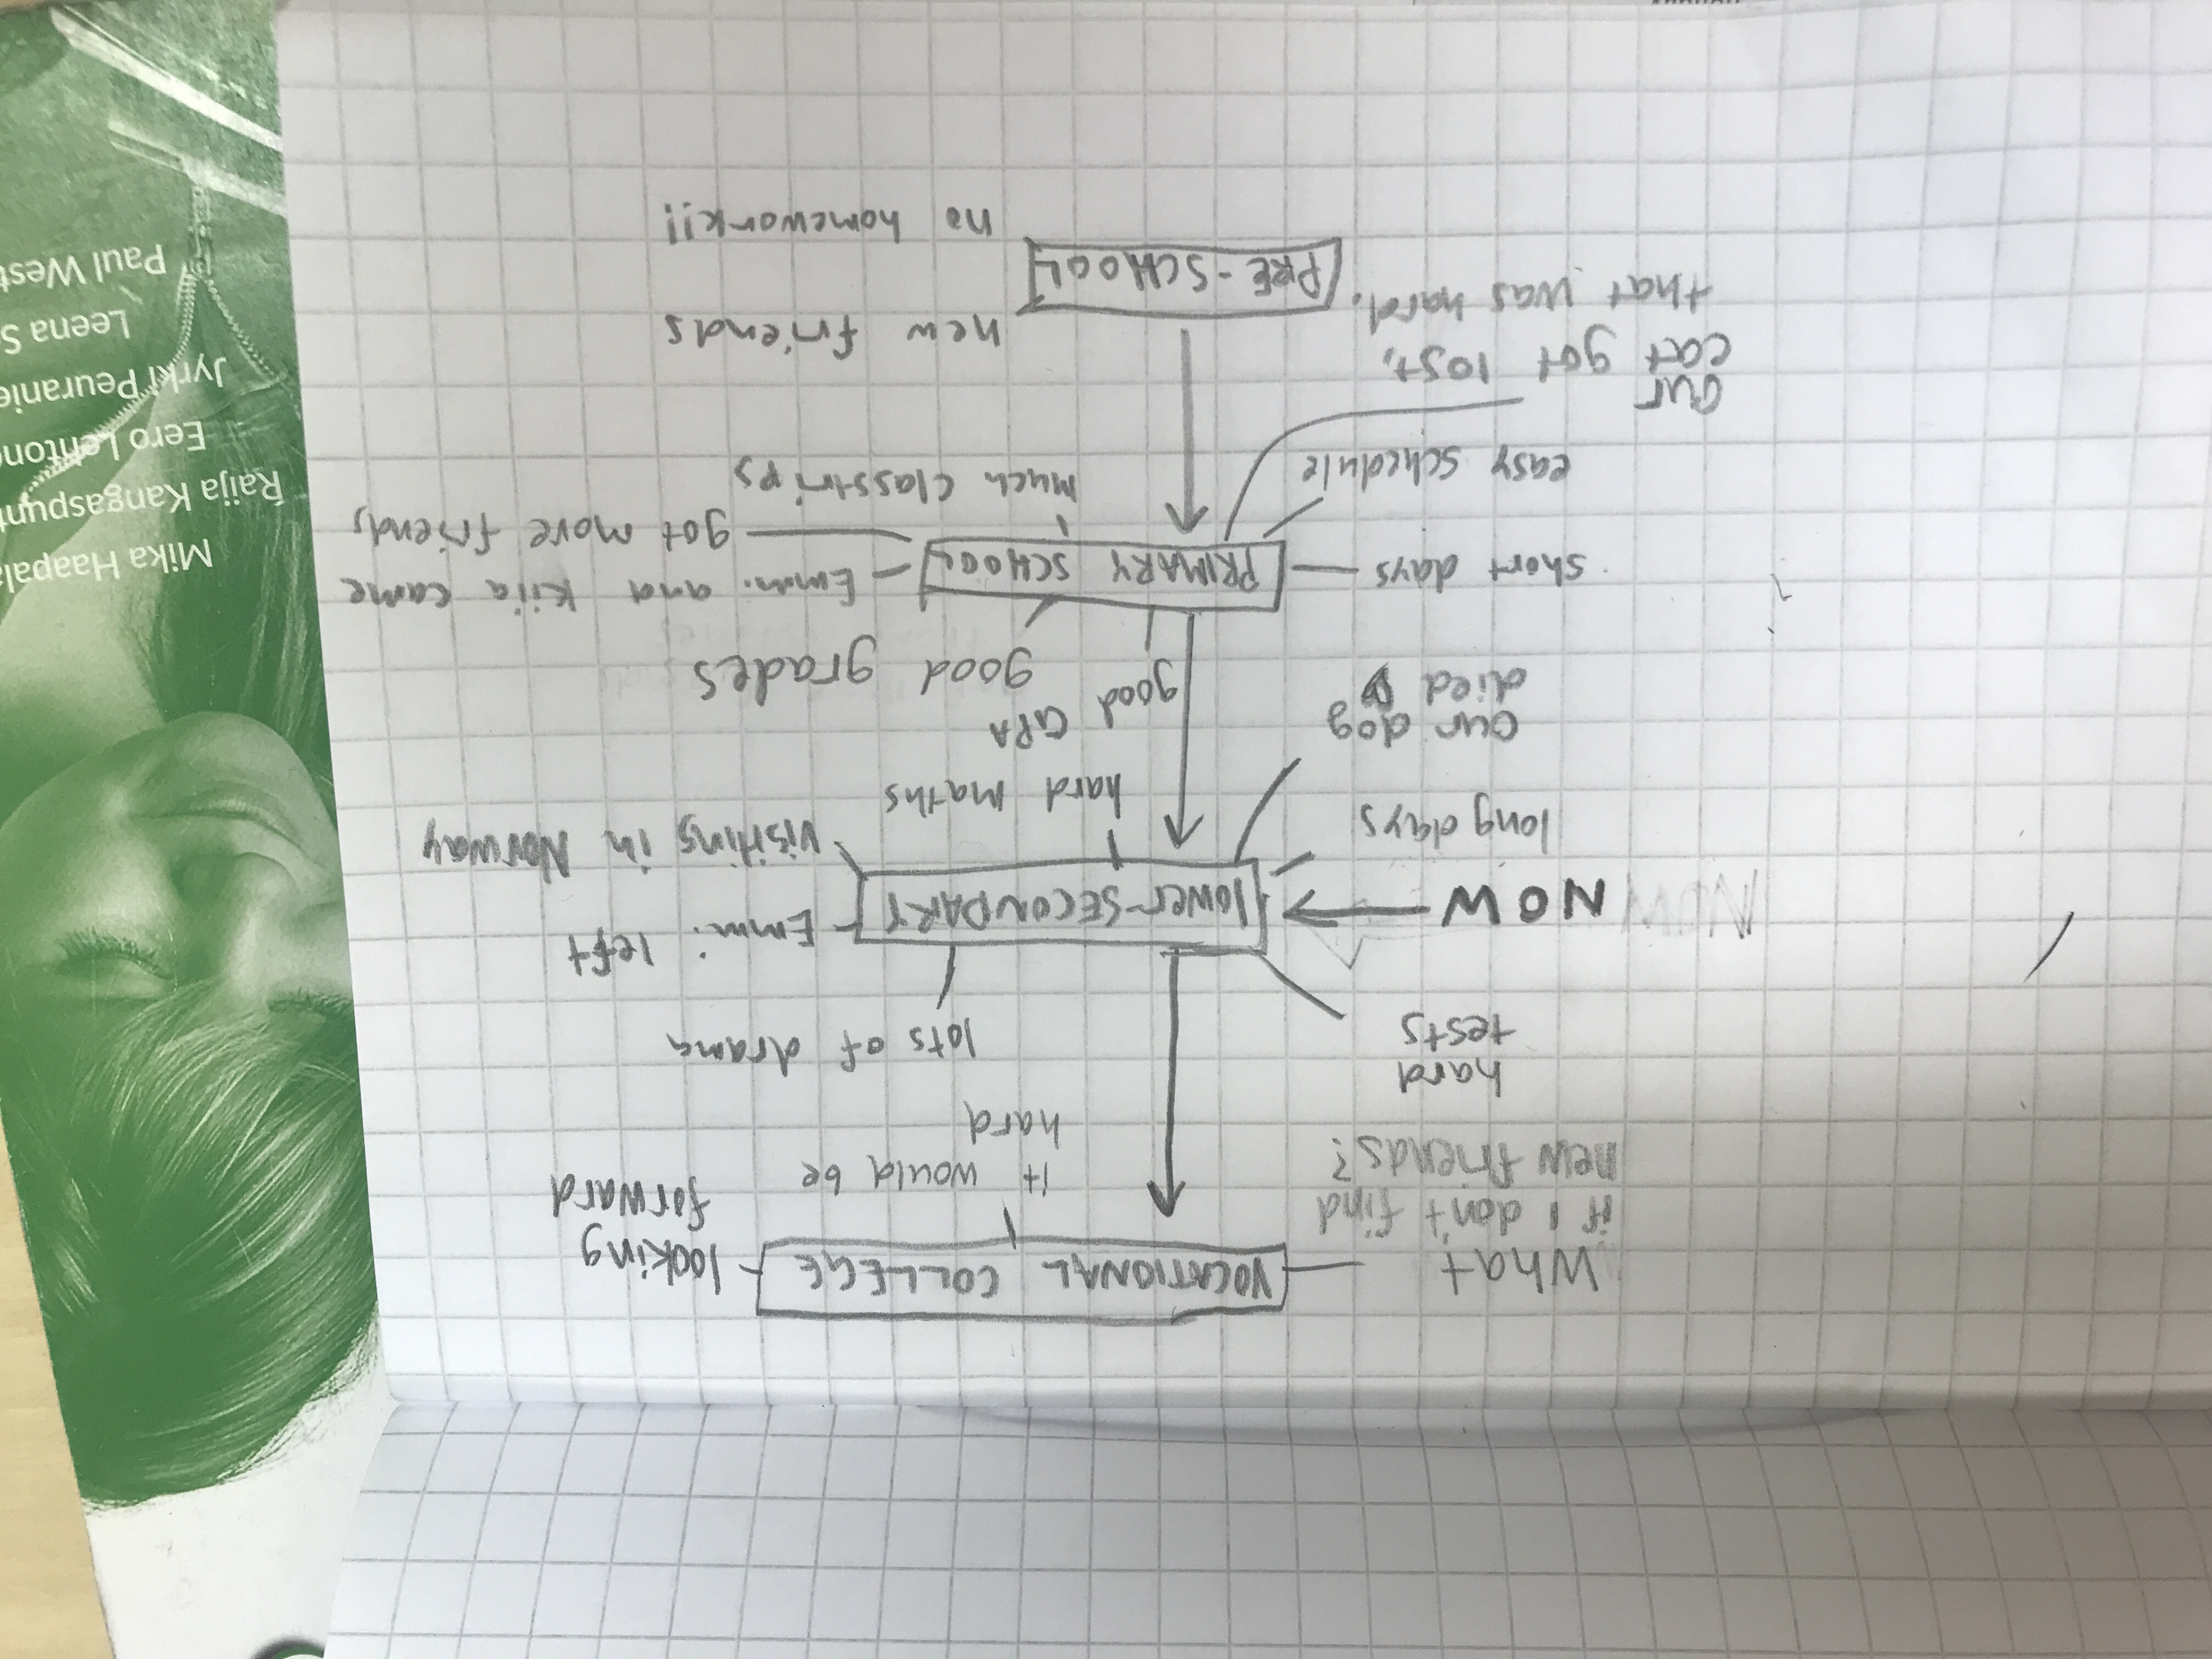 What
if I don't find
new friends?
VOCATIONAL COLLEGE
looking
forward
it would be
hard
hard
tests
lots of drama
NOW
NOW
lower-SECONDARY
Emmi left
visiting in Norway
long days
hard maths
our dog
died
good
GPA
good grades
short days
PRIMARY SCHOOL
Emmi and Kiia came
got more friends
easy schedule
much classtrips
our
cat got lost,
that was hard.
new friends
PRE-SCHOOL
no homework!!
Mika Haapala
Raija Kangaspunt
Eero Lehtone
Jyrki Peuranie
Leena S
Paul West